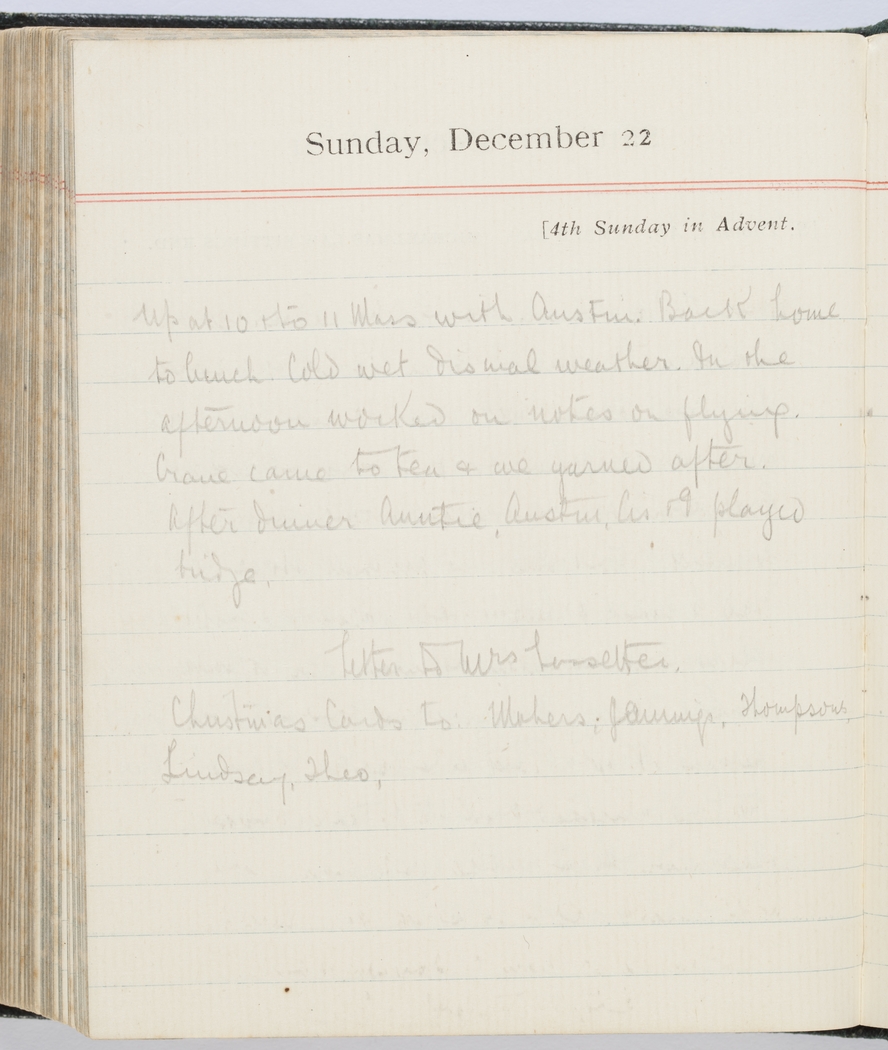 Sunday, December 22
[4th Sunday in Advent.
Up at 10 & to 11 Mass with Austin. Back home
to lunch. Cold wet dismal weather. In the
afternoon worked on notes on flying.
Crane came to tea & we yarned after.
After dinner Auntie, Austin, & I played
bridge.
Letter to Mrs
Christmas Cards to: Mahers, Thompsons,
Lindsay, Theo,